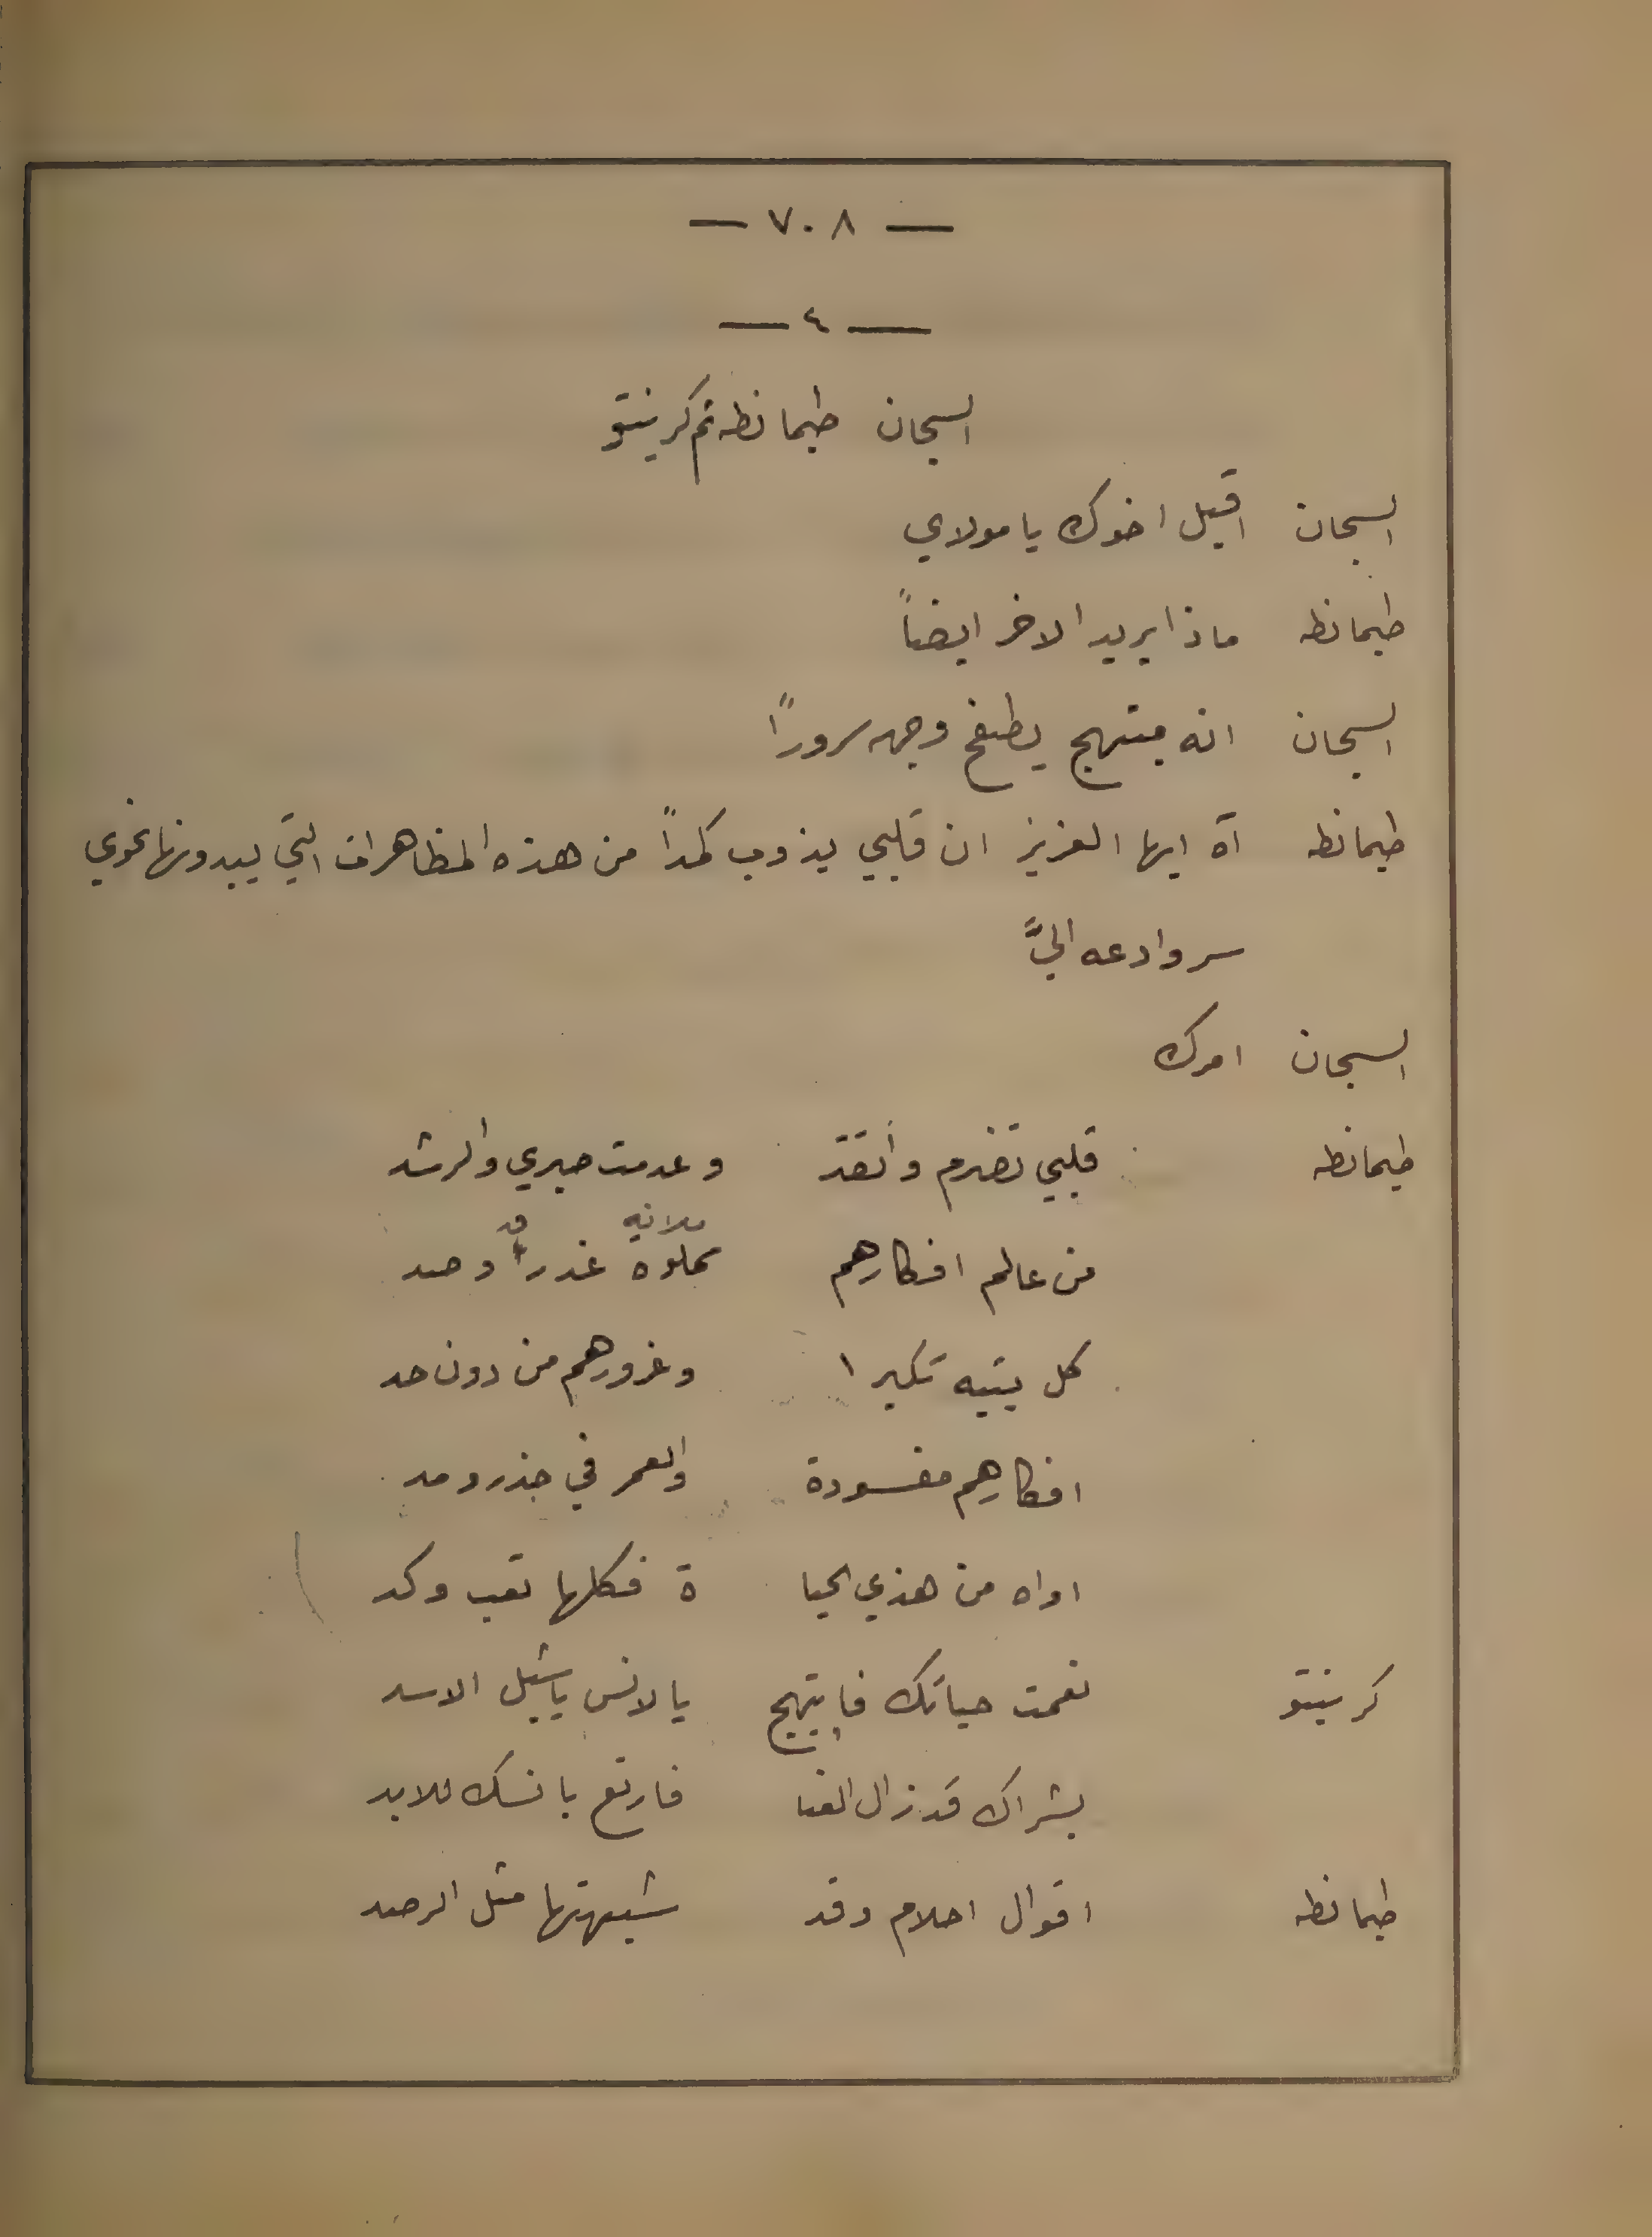 — ٧٠٨ —
— ٤ —
السجان طيمانطه ثم كرينتو
السجان اقبل اخوك يا مولاي
طيمانطه ماذا يريد الاخر ايضاً
السجان انه مبتهج يطفح وجهه سروراً
طيمانطه آه ايها العزيز ان قلبي يذوب كمداً من هذه المظاهرات التي يبدونها نحوي
سر وادعه اليَّ
السجان امرك
طيمانطه قلبي تضرم واتقد وعدمت صبري والرشد
ملانيه قد
من عالم افكارهم مملوة غدر وصد
كل يتيه تكبرا وغرورهم من دون حد
افكارهم مفسودة والعمر في جذر ومد
اواه من هذي الحيا ة فكلها تعب وكد
كرينتو نعمت حياتك فابتهج يا لانس يا شبل الاسد
بشراك قد زال العنا فارتع بانسك للابد
طيمانطه اقوال احلام وقد شبهتها مثل الرصد